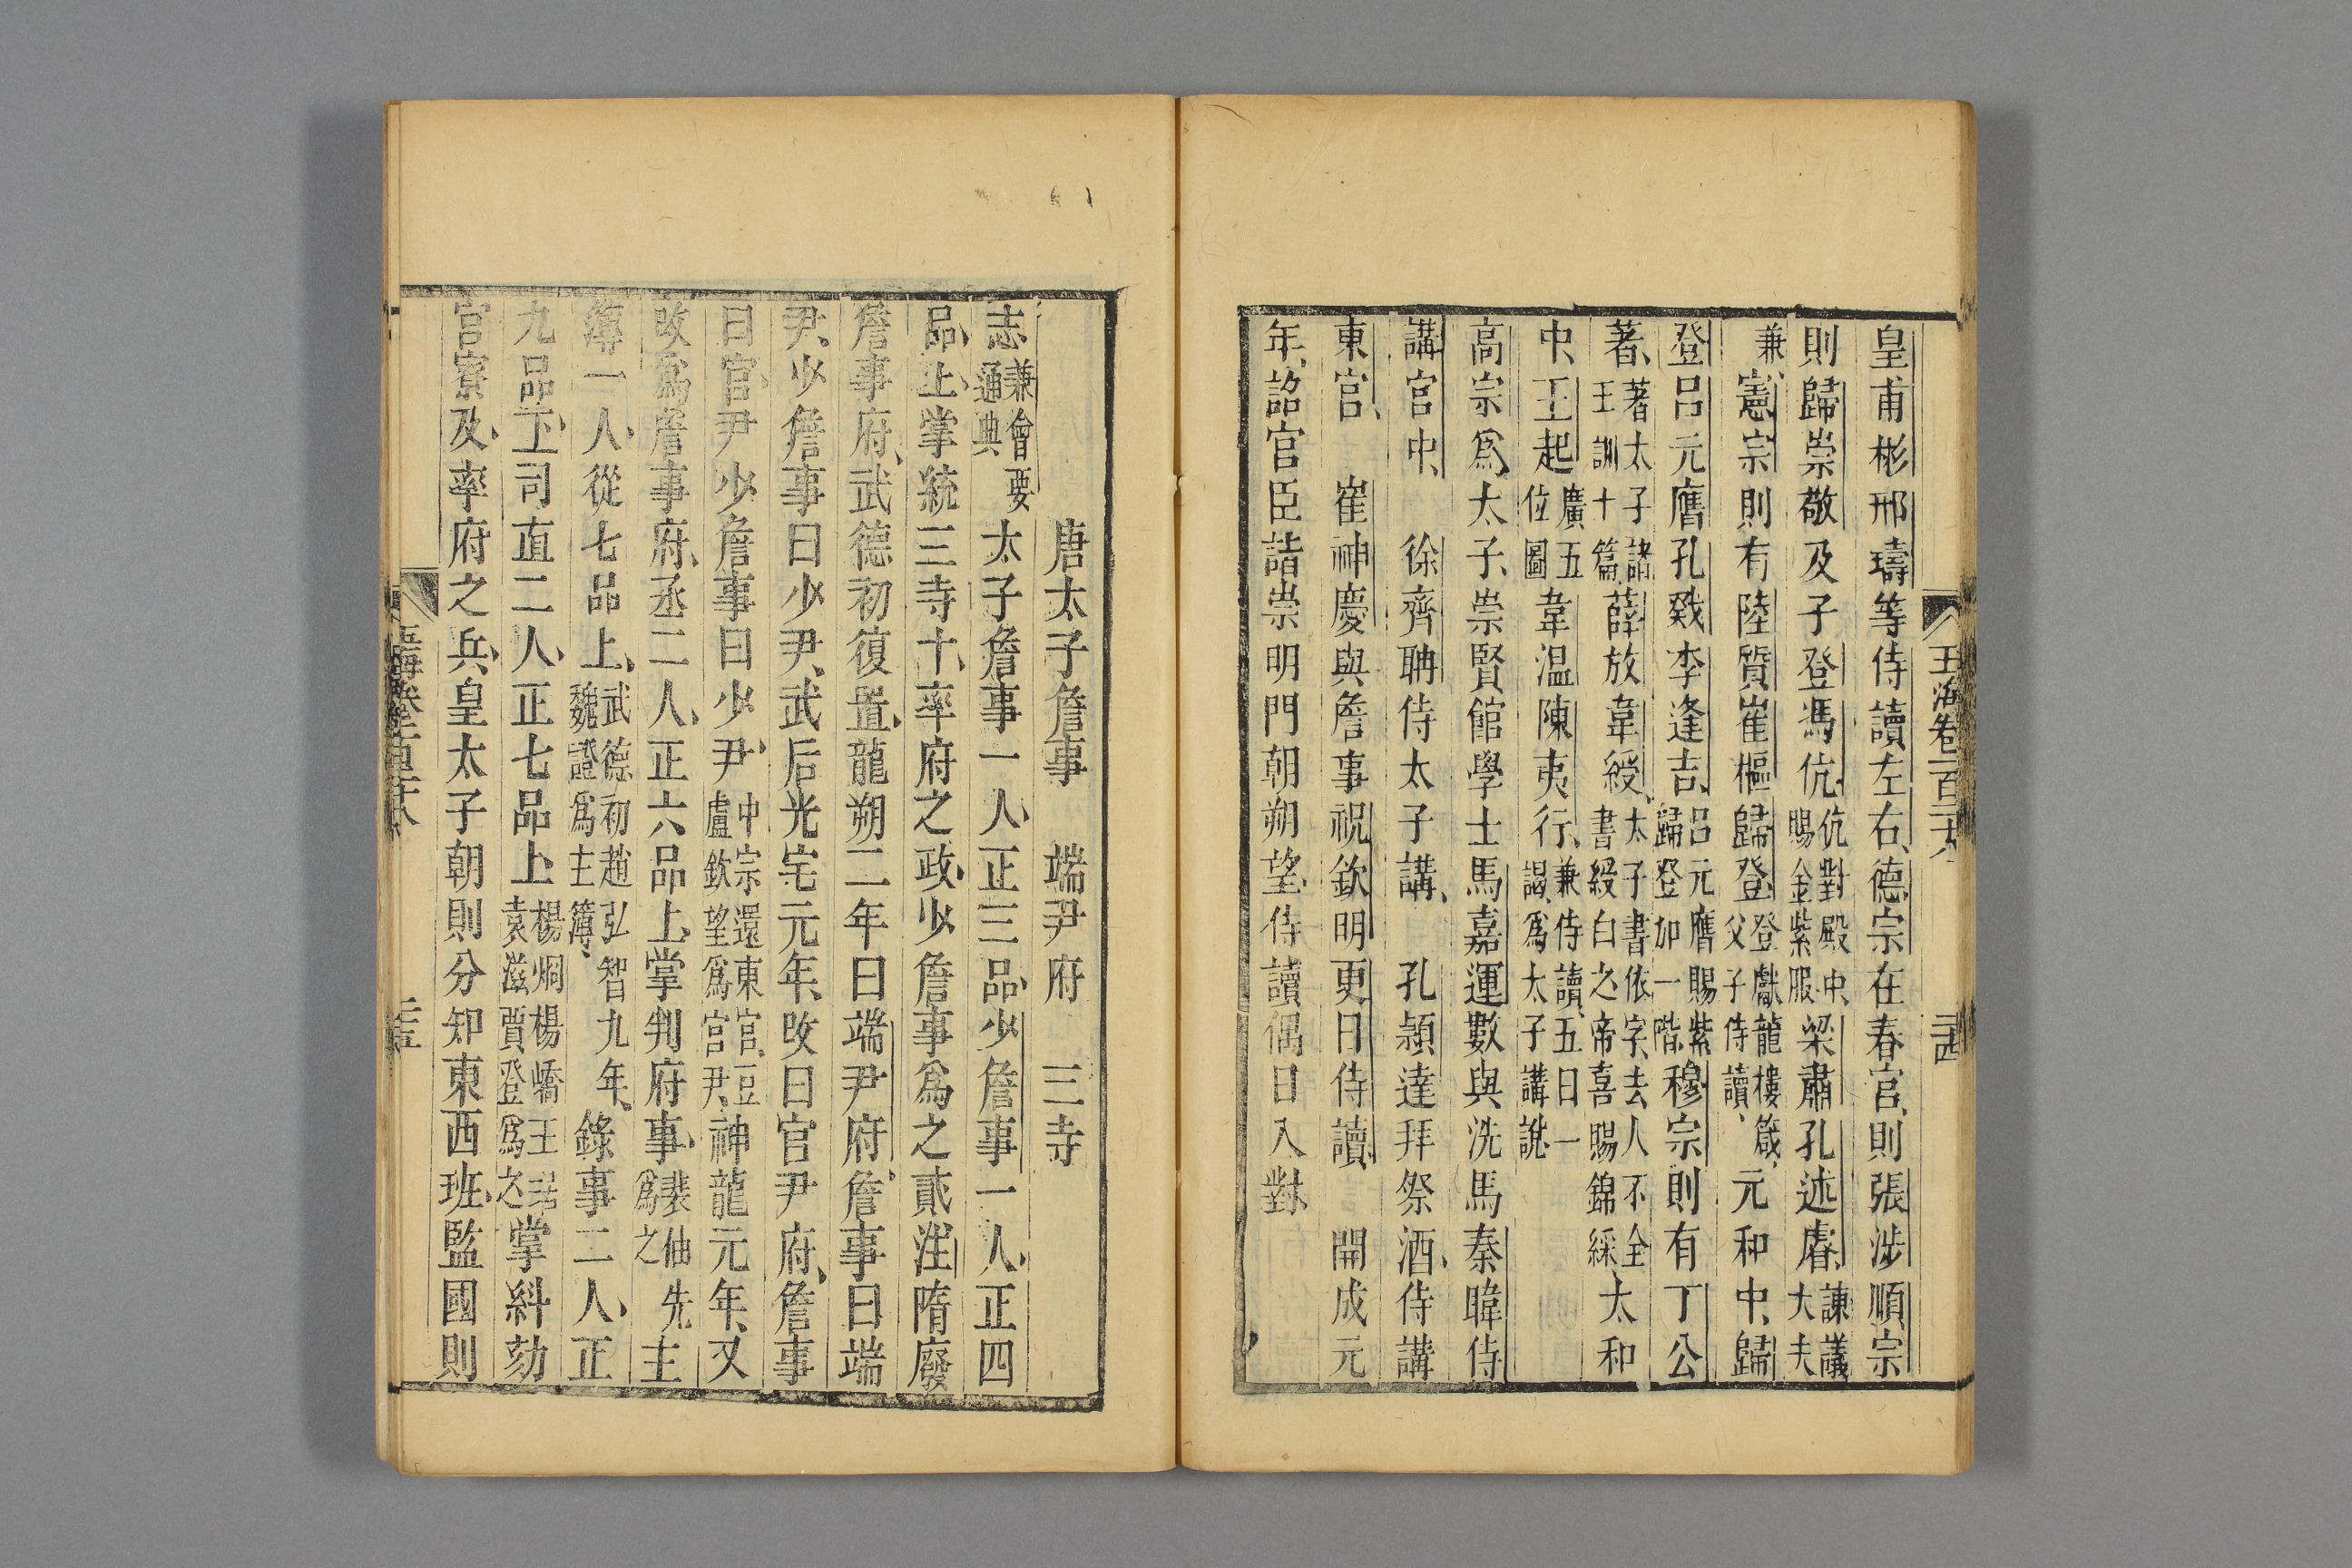 玉海卷一百二十八
二十四
皇甫彬邢璹等侍讀左右德宗在春官則張涉順宗
則歸崇敬及子登馮伉伉對殿中賜金紫服梁肅孔述睿諫議大夫
兼憲宗則有陸質崔樞歸登登獻龍樓箴父子侍讀元和中歸
登呂元膺孔戣李逢吉呂元膺賜紫歸登加一階穆宗則有丁公
著著太子諸王訓十篇薛放韋綬太子書依字去人不全書綬白之帝喜賜錦綵太和
中王起廣五位圖韋温陳夷行兼侍讀五日一謁爲太子講説
高宗爲太子崇賢館學士馬嘉運數與洗馬秦暐侍
講官中　徐齊聃侍太子講　孔頴達拜祭酒侍講
東官　崔神慶與詹事祝欽明更日侍讀　開成元
年詔官臣詣崇明門朝朔望侍讀偶日入對
唐太子詹事　端尹府　三寺
志兼會要通典太子詹事一人正三品少詹事一人正四
品上掌統三寺十率府之政少詹事爲之貳注隋廢
詹事府武德初復置龍朔二年曰端尹府詹事曰端
尹少詹事曰少尹武后光宅元年改曰官尹府詹事
曰官尹少詹事曰少尹中宗還東官豆盧欽望爲宫尹神龍元年又
改爲詹事府丞二人正六品上掌判府事裴伷先爲之主
簿一人從七品上武德初趙弘智九年魏證爲主簿錄事二人正
九品下司直二人正七品上楊烱楊嶠王琚袁滋賈登爲之掌糾劾
官寮及率府之兵皇太子朝則分知東西班監國則
玉海卷一百二十八
二十五